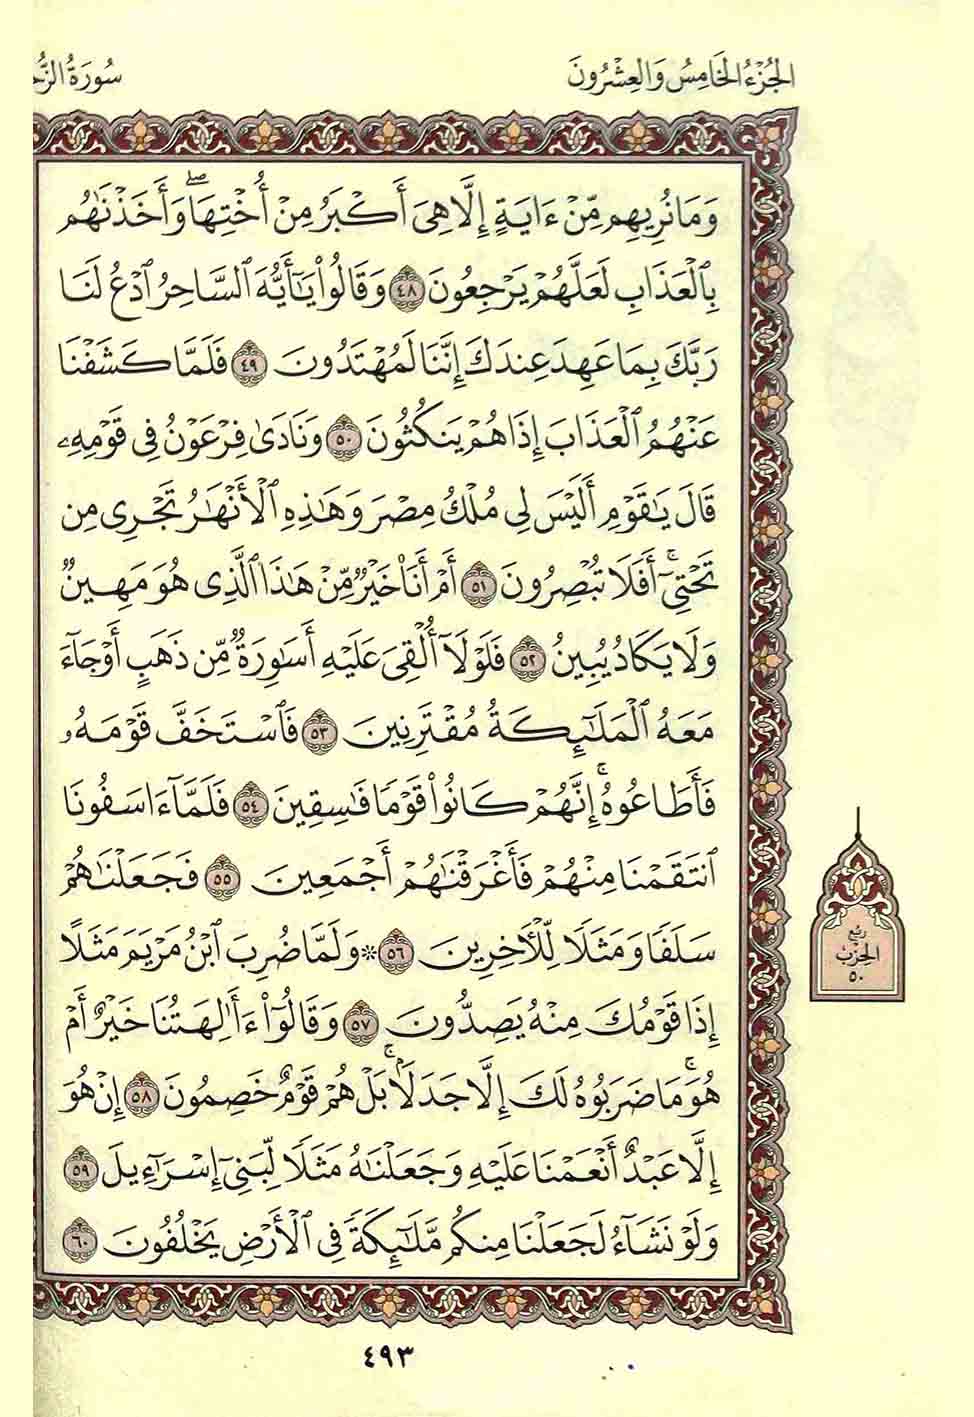 الجُزْءُ الخَامِسُ وَالعِشْرُونَ
سُورَةُ الزُّخ
وَمَا نُرِيهِم مِّنْ ءَايَةٍ إِلَّا هِىَ أَكْبَرُ مِنْ أُخْتِهَا ۖ وَأَخَذْنَٰهُم
بِٱلْعَذَابِ لَعَلَّهُمْ يَرْجِعُونَ ٤٨ وَقَالُوا۟ يَٰٓأَيُّهَ ٱلسَّاحِرُ ٱدْعُ لَنَا
رَبَّكَ بِمَا عَهِدَ عِندَكَ إِنَّنَا لَمُهْتَدُونَ ٤٩ فَلَمَّا كَشَفْنَا
عَنْهُمُ ٱلْعَذَابَ إِذَا هُمْ يَنكُثُونَ ٥٠ وَنَادَىٰ فِرْعَوْنُ فِى قَوْمِهِۦ
قَالَ يَٰقَوْمِ أَلَيْسَ لِى مُلْكُ مِصْرَ وَهَٰذِهِ ٱلْأَنْهَٰرُ تَجْرِى مِن
تَحْتِىٓ ۚ أَفَلَا تُبْصِرُونَ ٥١ أَمْ أَنَا۠ خَيْرٌ مِّنْ هَٰذَا ٱلَّذِى هُوَ مَهِينٌ
وَلَا يَكَادُ يُبِينُ ٥٢ فَلَوْلَآ أُلْقِىَ عَلَيْهِ أَسْوِرَةٌ مِّن ذَهَبٍ أَوْ جَآءَ
مَعَهُ ٱلْمَلَٰٓئِكَةُ مُقْتَرِنِينَ ٥٣ فَٱسْتَخَفَّ قَوْمَهُۥ
فَأَطَاعُوهُ ۚ إِنَّهُمْ كَانُوا۟ قَوْمًا فَٰسِقِينَ ٥٤ فَلَمَّآ ءَاسَفُونَا
ٱنتَقَمْنَا مِنْهُمْ فَأَغْرَقْنَٰهُمْ أَجْمَعِينَ ٥٥ فَجَعَلْنَٰهُمْ
سَلَفًا وَمَثَلًا لِّلْءَاخِرِينَ ٥٦ * وَلَمَّا ضُرِبَ ٱبْنُ مَرْيَمَ مَثَلًا
إِذَا قَوْمُكَ مِنْهُ يَصِدُّونَ ٥٧ وَقَالُوٓا۟ ءَأَٰلِهَتُنَا خَيْرٌ أَمْ
هُوَ ۚ مَا ضَرَبُوهُ لَكَ إِلَّا جَدَلًۢا ۚ بَلْ هُمْ قَوْمٌ خَصِمُونَ ٥٨ إِنْ هُوَ
إِلَّا عَبْدٌ أَنْعَمْنَا عَلَيْهِ وَجَعَلْنَٰهُ مَثَلًا لِّبَنِىٓ إِسْرَٰٓءِيلَ ٥٩
وَلَوْ نَشَآءُ لَجَعَلْنَا مِنكُم مَّلَٰٓئِكَةً فِى ٱلْأَرْضِ يَخْلُفُونَ ٦٠
ربع
الحزب
٥٠
٤٩٣